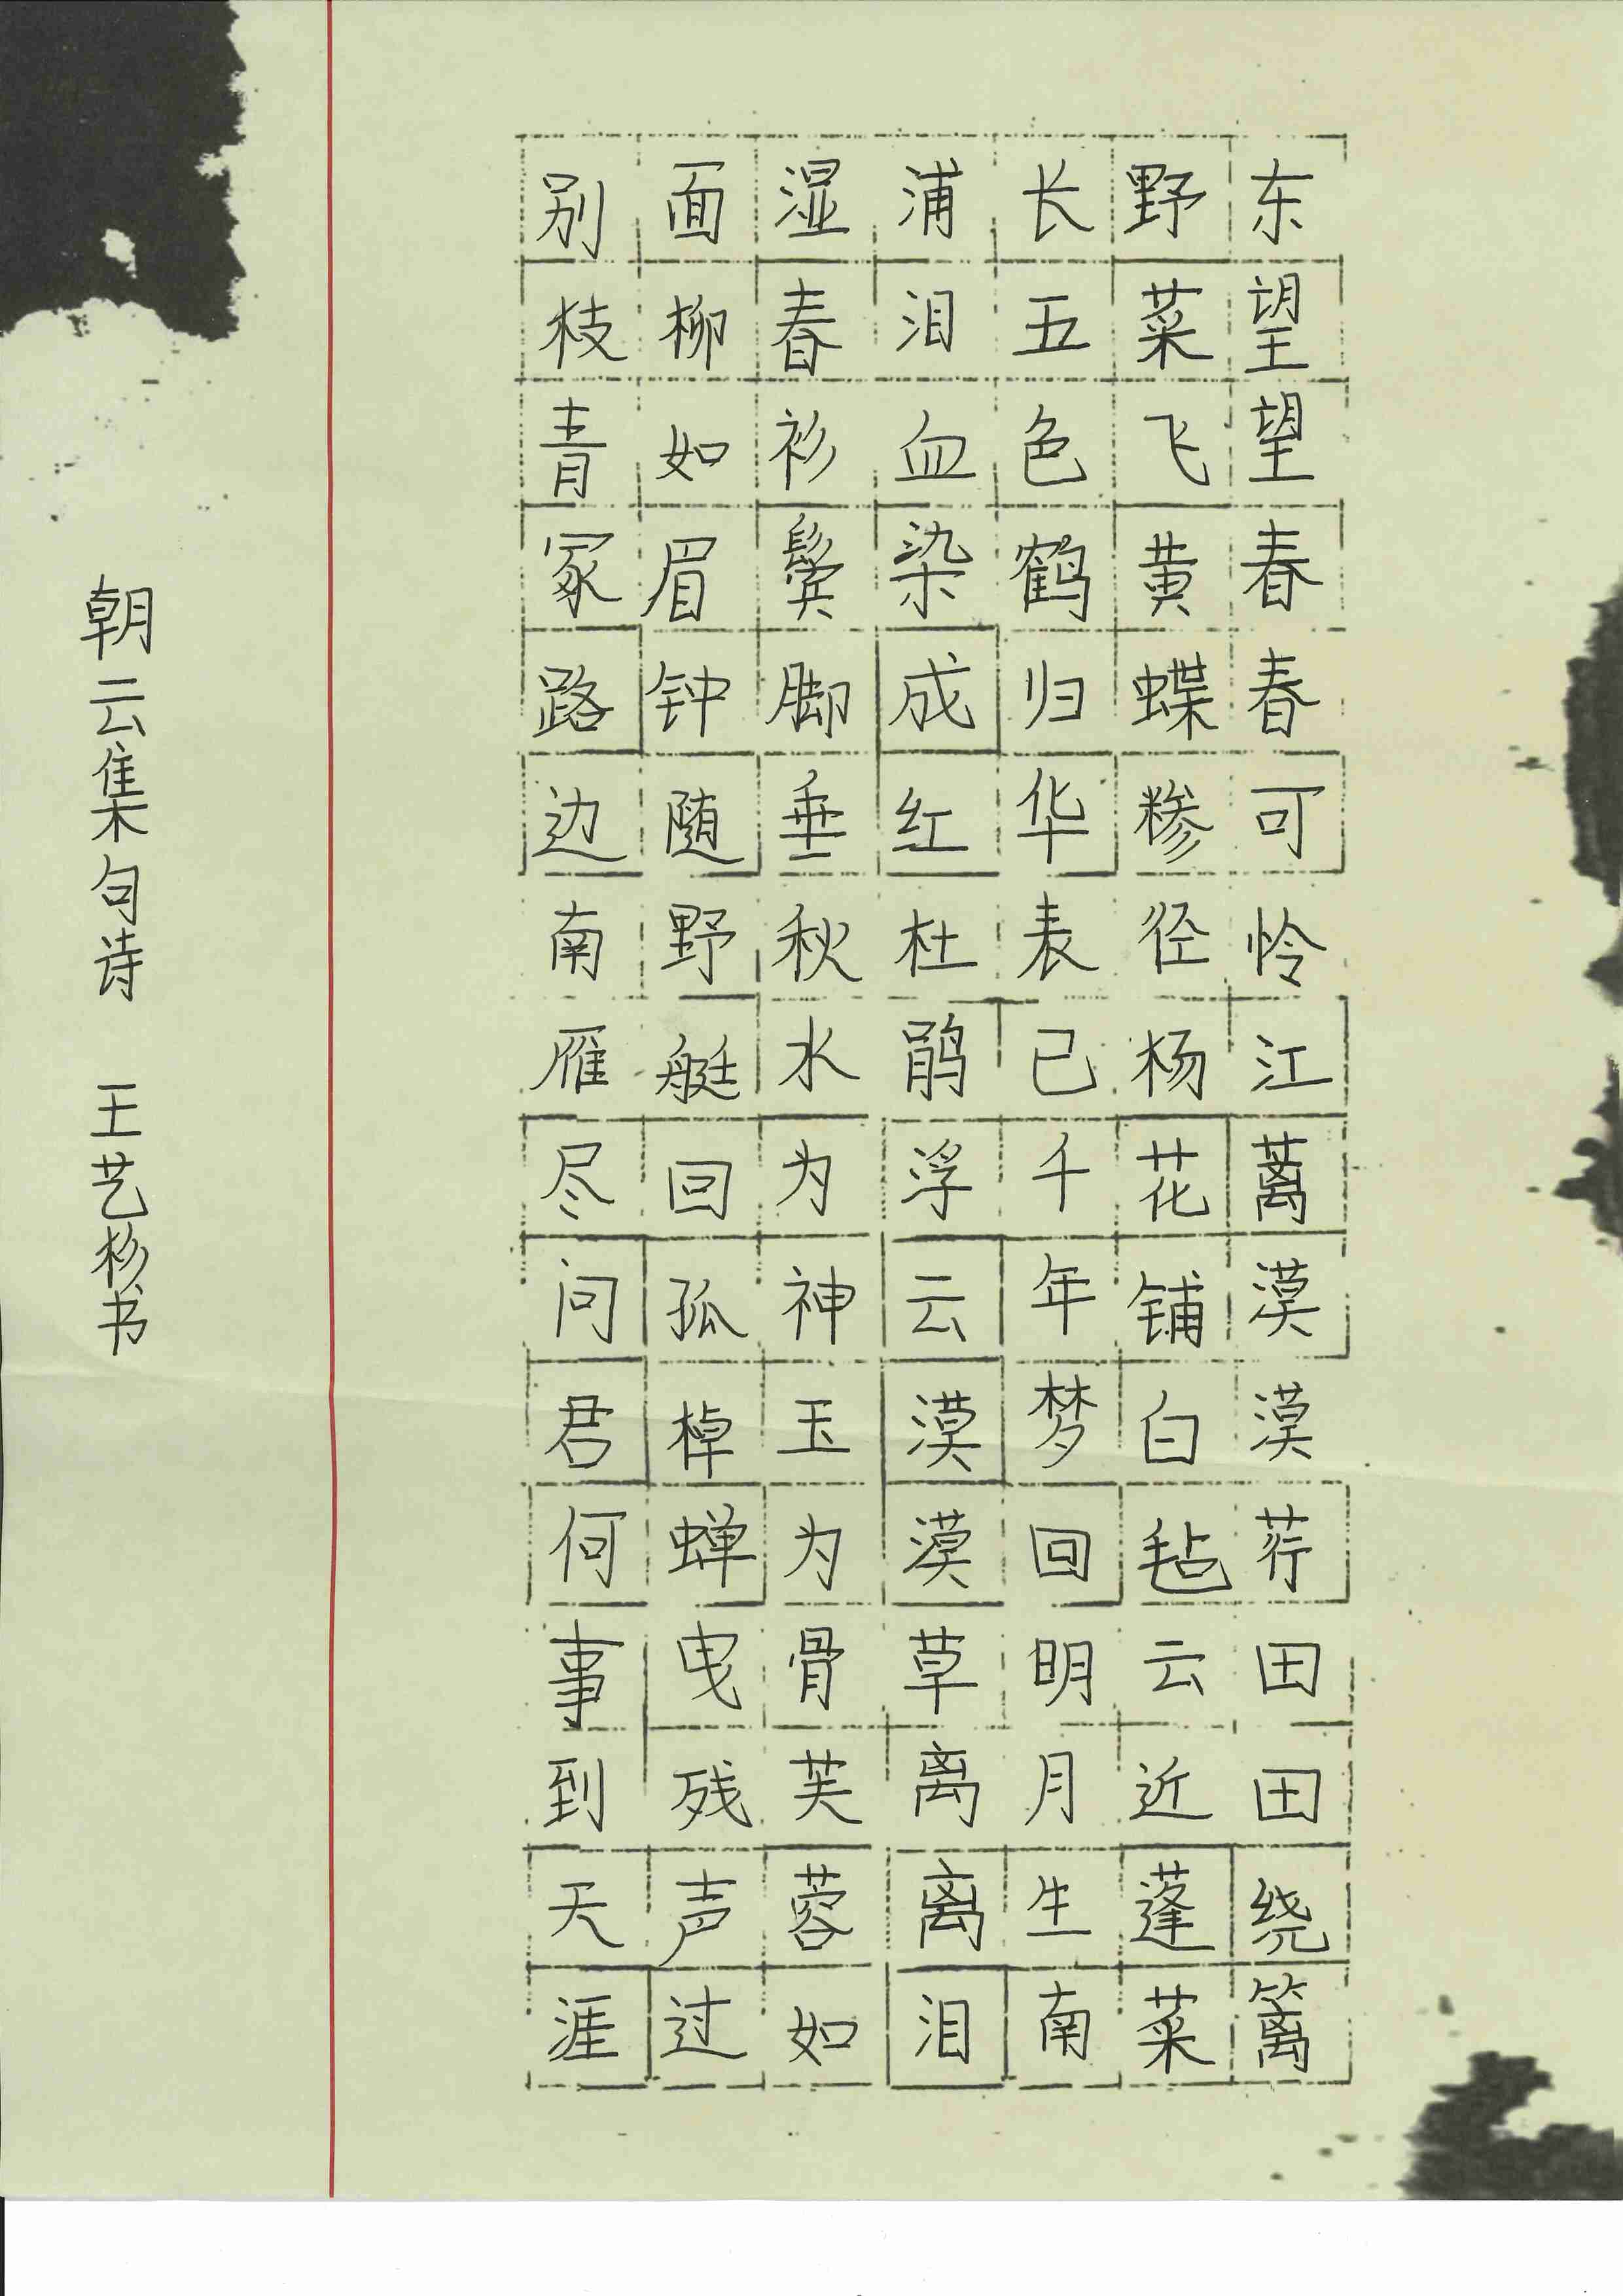 东望望春春可怜江蓠漠漠荇田田绕篱
野菜飞黄蝶糁径杨花铺白毡云近蓬菜
长五色鹤归华表已千年梦回明月生南
浦泪血染成红杜鹃浮云漠漠草离离泪
湿春衫鬓脚垂秋水为神玉为骨芙蓉如
面柳如眉钟随野艇回孤棹蝉曳残声过
别枝青冢路边南雁尽问君何事到天涯
朝云集句诗 王艺杉书